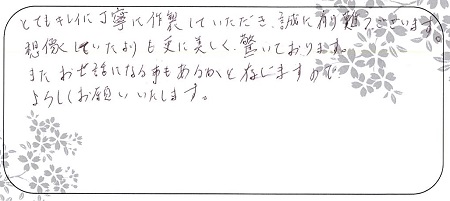 とてもキレイに丁寧に作製していただき、誠に有難うございます。
想像していたよりも更に美しく、驚いております。
またお世話になる事もあるかと存じますので
よろしくお願いいたします。